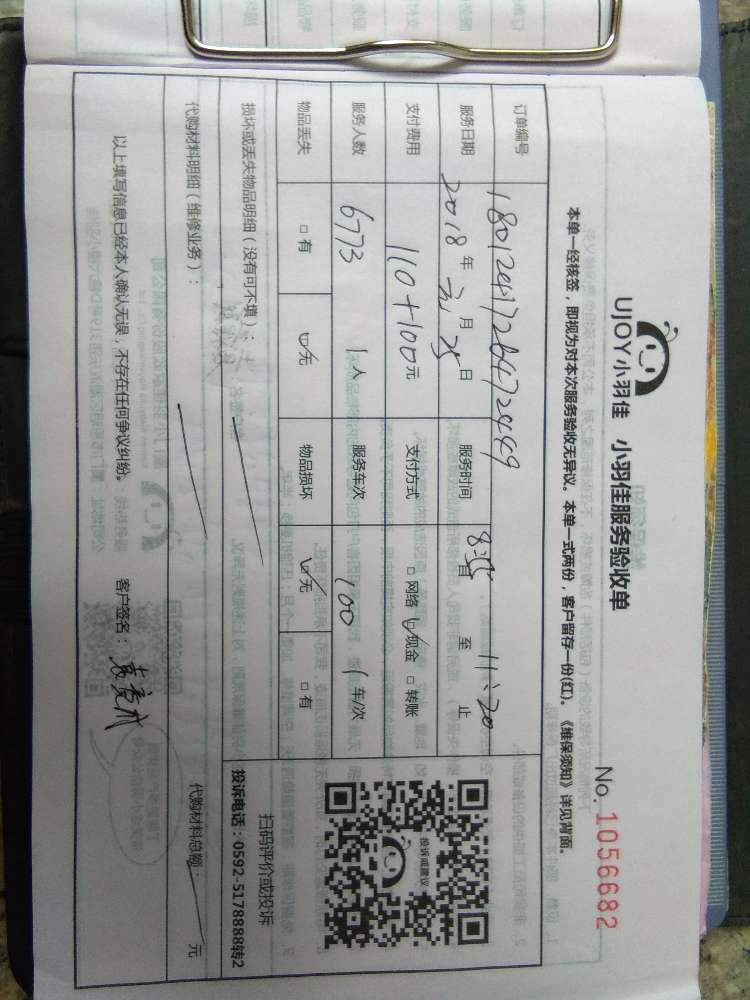 UJOY小羽佳 小羽佳服务验收单
No. 1056682
本单一经核签，即视为对本次服务验收无异议。本单一式两份，客户留存一份(红)。《维保须知》详见背面。
订单编号 1801241726472449
服务日期 2018年 元月 25日 服务时间 8:55自 至 11:20止
支付费用 110+100元 支付方式 □网络 ☑现金 □转账
服务人数 6773 1人 服务车次 100 1车/次
物品丢失 □有 ☑无 物品损坏 ☑无 □有
损坏或丢失物品明细（没有可不填）：
代购材料明细（维修业务）： 代购材料总额： 元
以上填写信息已经本人确认无误，不存在任何争议纠纷。 客户签名：
投诉或建议
扫码评价或投诉
投诉电话：0592-5178888转2